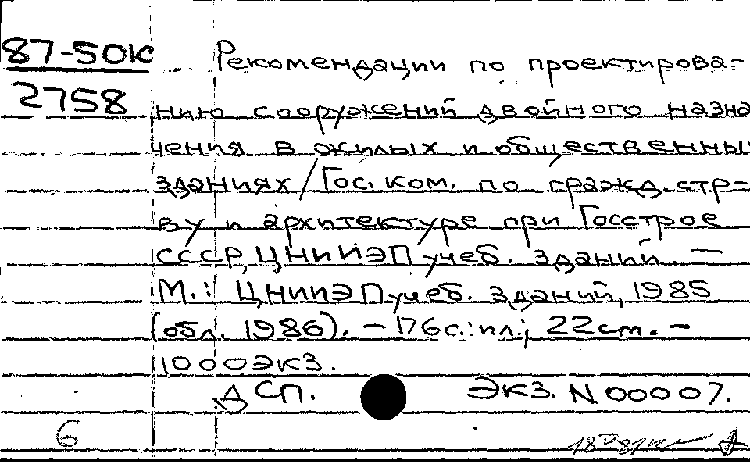 87-50к
2758
Рекомендации по проектирова-
нию сооружений двойного назна
чения в жилых и общественны
зданиях/Гос. ком. по гражд. стр-
ву и архитектуре при Госстрое
СССР, ЦНИИЭП учеб. зданий. —
М.: ЦНИИЭП учеб. зданий, 1985
(обл. 1986). - 176с.: ил.; 22 см. -
1000 экз.
ДСП. Экз. N 00007.
6